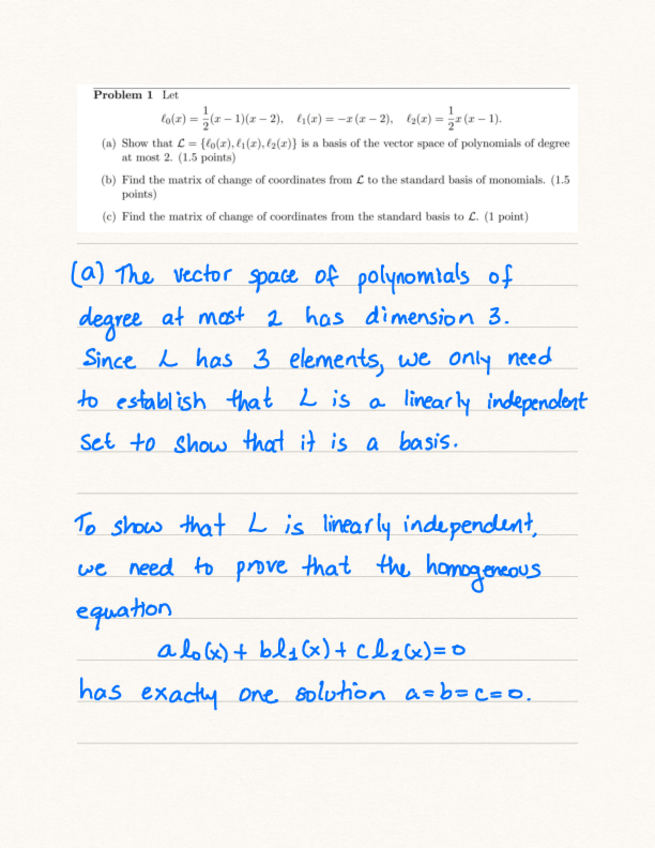 Problem 1 Let
ℓ₀(x) = 1/2 (x − 1)(x − 2), ℓ₁(x) = −x (x − 2), ℓ₂(x) = 1/2 x (x − 1).
(a) Show that ℒ = {ℓ₀(x), ℓ₁(x), ℓ₂(x)} is a basis of the vector space of polynomials of degree
at most 2. (1.5 points)
(b) Find the matrix of change of coordinates from ℒ to the standard basis of monomials. (1.5
points)
(c) Find the matrix of change of coordinates from the standard basis to ℒ. (1 point)
(a) The vector space of polynomials of
degree at most 2 has dimension 3.
Since L has 3 elements, we only need
to establish that L is a linearly independent
set to show that it is a basis.
To show that L is linearly independent,
we need to prove that the homogeneous
equation
a l₀(x) + b l₁(x) + c l₂(x) = 0
has exactly one solution a=b=c=0.